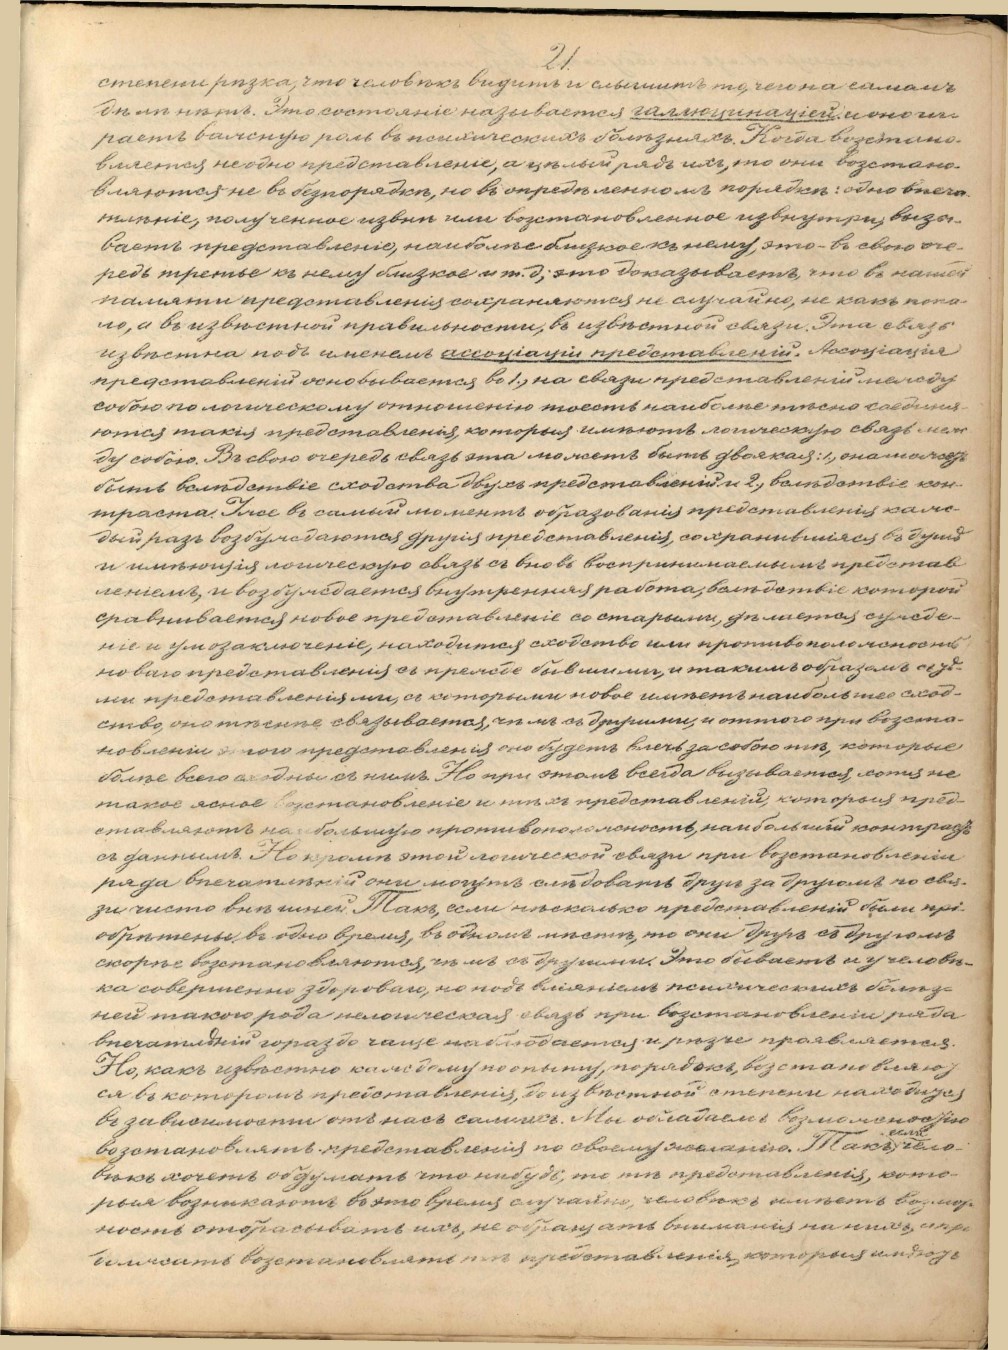 21.
степени рѣзка, что человѣкъ видитъ и слышитъ то, чего на самомъ
дѣлѣ нѣтъ. Это состояніе называется галлюцинаціей и оно иг
раетъ важную роль въ психическихъ болѣзняхъ. Когда возстано-
вляется не одно представленіе, а цѣлый рядъ ихъ, то они возстано-
вляются не въ безпорядкѣ, но въ опредѣленномъ порядкѣ: одно впеча-
тлѣніе, полученное извнѣ или возстановленное извнутри, вызы-
ваетъ представленіе, наиболѣе близкое къ нему, это - въ свою оче-
редь третье къ нему близкое и т.д; это доказываетъ, что въ нашей
памяти представленія сохраняются не случайно, не какъ попа-
ло, а въ извѣстной правильности, въ извѣстной связи. Эта связь
извѣстна подъ именемъ ассоціаціи представленій. Ассоціація
представленій основывается во 1, на связи представленій между
собою по логическому отношенію тоесть наиболѣе тѣсно соединя-
ются такія представленія, которыя имѣютъ логическую связь меж
ду собою. Въ свою очередь связь эта можетъ быть двоякая: 1, она можетъ
быть вслѣдствіе сходства двухъ представленій и 2, вслѣдствіе кон-
траста. Уже въ самый моментъ образованія представленія каж-
дый разъ возбуждаются другія представленія, сохранившіяся въ душѣ
и имѣющія логическую связь съ вновь воспринимаемымъ представ
леніемъ, и возбуждается внутренняя работа, вслѣдствіе которой
сравнивается новое представленіе со старыми, дѣлается сужде-
ніе и умозаключеніе, находится сходство или противоположность
новаго представленія съ прежде бывшими, и такимъ образомъ съ тѣ-
ми представленіями, съ которыми новое имѣетъ наибольшее сход-
ство, оно тѣснѣе связывается, чѣмъ съ другими, и оттого при возста-
новленіи этого представленія оно будетъ влечь за собою тѣ, которые
болѣе всего сходны съ нимъ. Но при этомъ всегда вызывается, хотя не
такое ясное возстановленіе и тѣхъ представленій, которыя пред-
ставляютъ наибольшую противоположность, наибольшій контрастъ
съ даннымъ. Но кромѣ этой логической связи при возстановленіи
ряда впечатлѣній они могутъ слѣдовать другъ за другомъ по свя-
зи чисто внѣшней. Такъ, если нѣсколько представленій были прі-
обрѣтены въ одно время, въ одномъ мѣстѣ, то они другъ съ другомъ
скорѣе возстановляются, чѣмъ съ другими. Это бываетъ и у человѣ-
ка совершенно здороваго, но подъ вліяніемъ психическихъ болѣз-
ней такого рода нелогическая связь при возстановленіи ряда
впечатлѣній гораздо чаще наблюдается и рѣзче проявляется.
Но, какъ извѣстно каждому по опыту, порядокъ, возстановляют
ся въ которомъ представленія, до извѣстной степени находится
въ зависимости отъ насъ самихъ. Мы обладаемъ возможностію
возстановлять представленія по своему желанію. Такъ, если чело-
вѣкъ хочетъ обдумать что нибудь, то тѣ представленія, кото-
рыя возникаютъ въ это время случайно, человѣкъ имѣетъ возмож-
ность отбрасывать ихъ, не обращать вниманія на нихъ, и про
должать возстановлять тѣ представленія, которыя имѣютъ